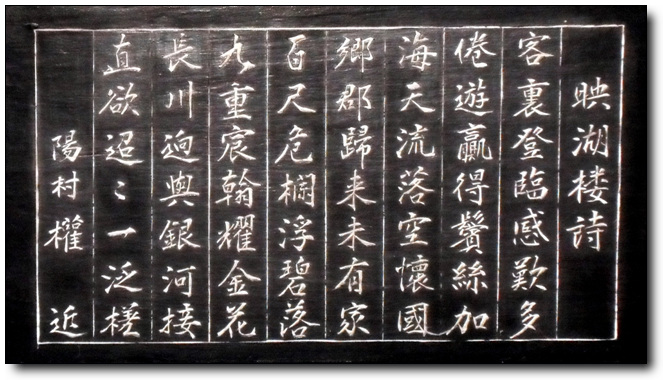 映湖楼詩
客裏登臨感歎多
倦遊贏得鬢絲加
海天流落空懷國
鄉郡歸来未有家
百尺危欄浮碧落
九重宸翰耀金花
長川逈與銀河接
直欲迢〻一泛槎
陽村權 近